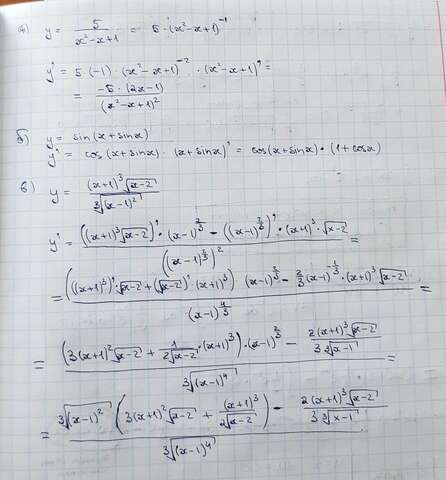 а) y = 5/(x²-x+1) = 5·(x²-x+1)⁻¹
y' = 5·(-1)·(x²-x+1)⁻²·(x²-x+1)' =
= -5·(2x-1)/(x²-x+1)²
б) y = sin(x+sinx)
y' = cos(x+sinx)·(x+sinx)' = cos(x+sinx)·(1+cosx)
в) y = (x+1)³√(x-2)/∛((x-1)²)
y' = (((x+1)³√(x-2))'·(x-1)^(2/3) - ((x-1)^(2/3))'·(x+1)³·√(x-2))/((x-1)^(2/3))² =
= ((((x+1)³)'·√(x-2) + (√(x-2))'·(x+1)³)·(x-1)^(2/3) - 2/3(x-1)^(-1/3)·(x+1)³√(x-2))/(x-1)^(4/3) =
= ((3(x+1)²√(x-2) + 1/(2√(x-2))·(x+1)³)·(x-1)^(2/3) - 2(x+1)³√(x-2)/(3∛(x-1)))/∛((x-1)⁴) =
= (∛((x-1)²)(3(x+1)²√(x-2) + (x+1)³/(2√(x-2))) - 2(x+1)³√(x-2)/(3∛(x-1)))/∛((x-1)⁴)